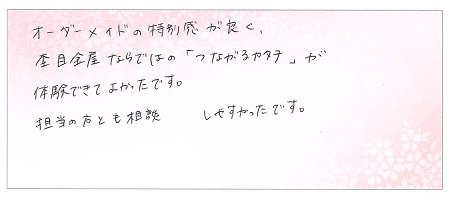 オーダーメイドの特別感が良く、
杢目金屋ならではの「つながるカタチ」が
体験できてよかったです。
担当の方とも相談　しやすかったです。